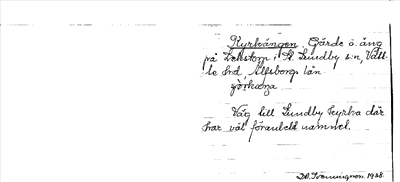 Kyrkvången. Gärde o. äng
på Lekstorp i St. Lundby s:n, Vätt-
le hd, Älfsborgs län
Väg till Lundby kyrka där
har väl föranlett namnet.
D. O. Svenningson. 1928.